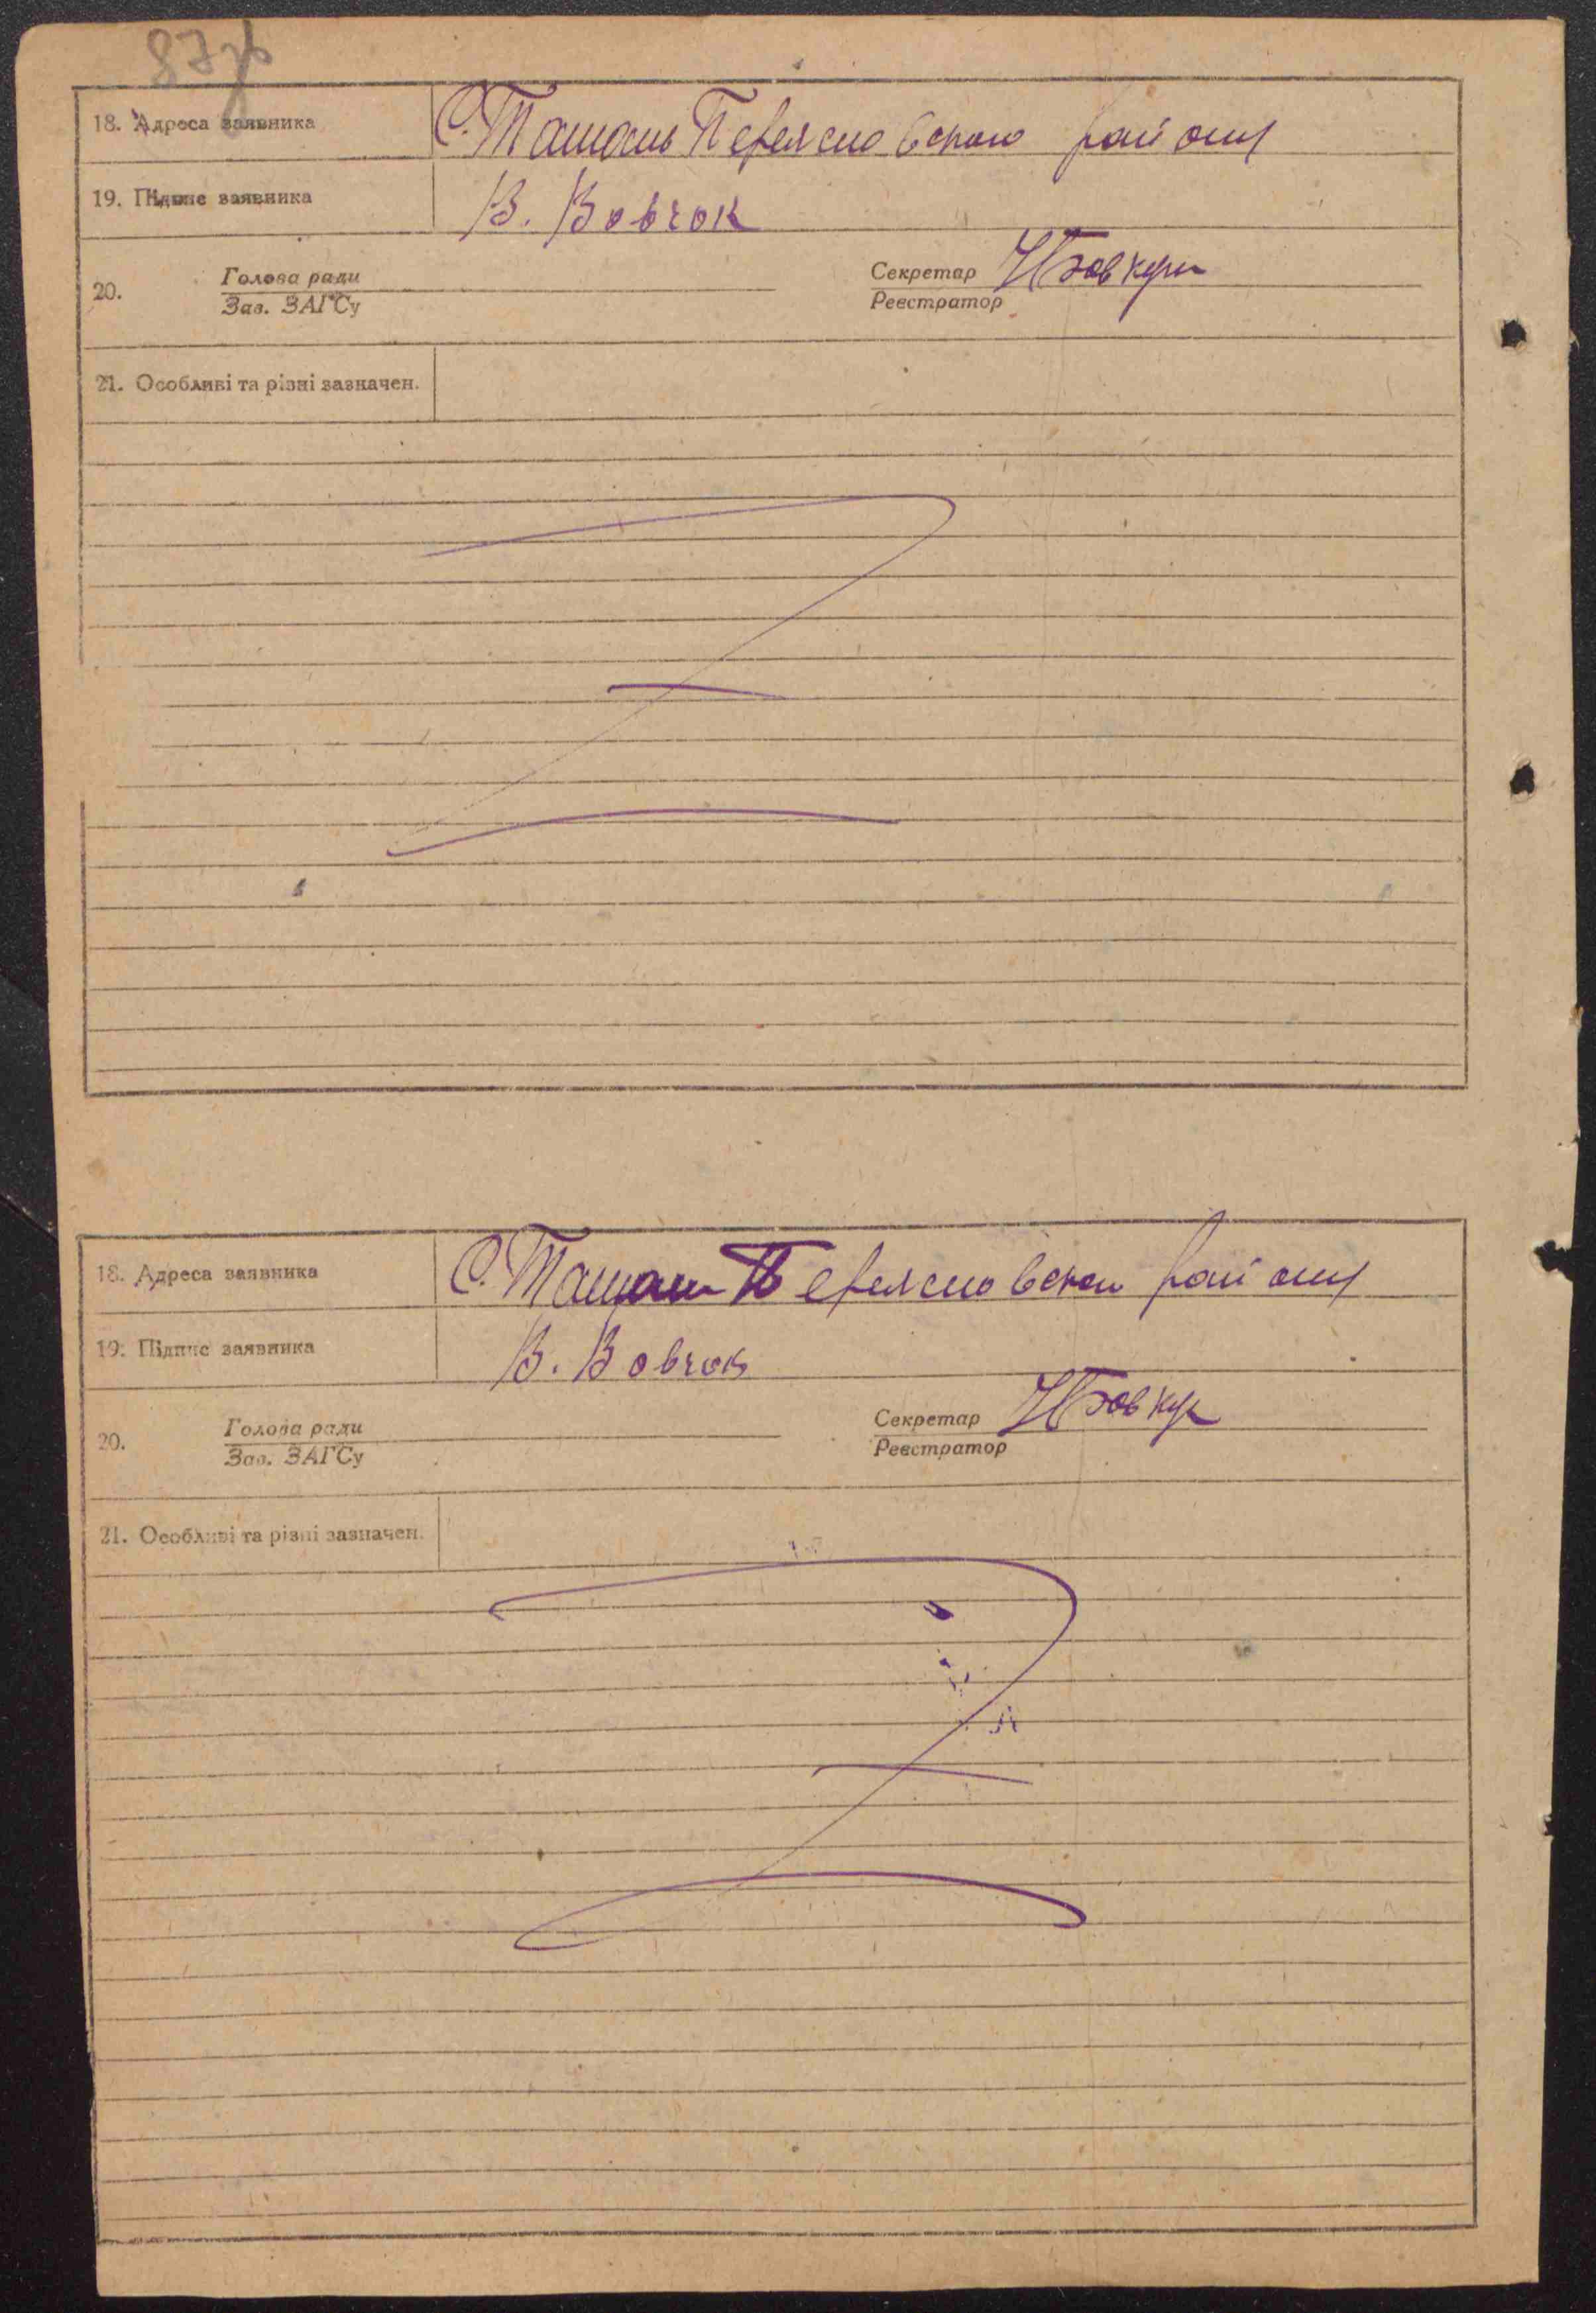 87зв
18. Адреса заявника С. Ташань Переяславського району
19. Підпис заявника В. Вовчок
Голова ради Секретар НБовкун
20.
Зав. ЗАГСу Реєстратор
21. Особливі та різні зазначен.
18. Адреса заявника С. Ташань Переяславського району
19. Підпис заявника В. Вовчок
Голова ради Секретар НБовкун
20.
Зав. ЗАГСу Реєстратор
21. Особливі та різні зазначен.